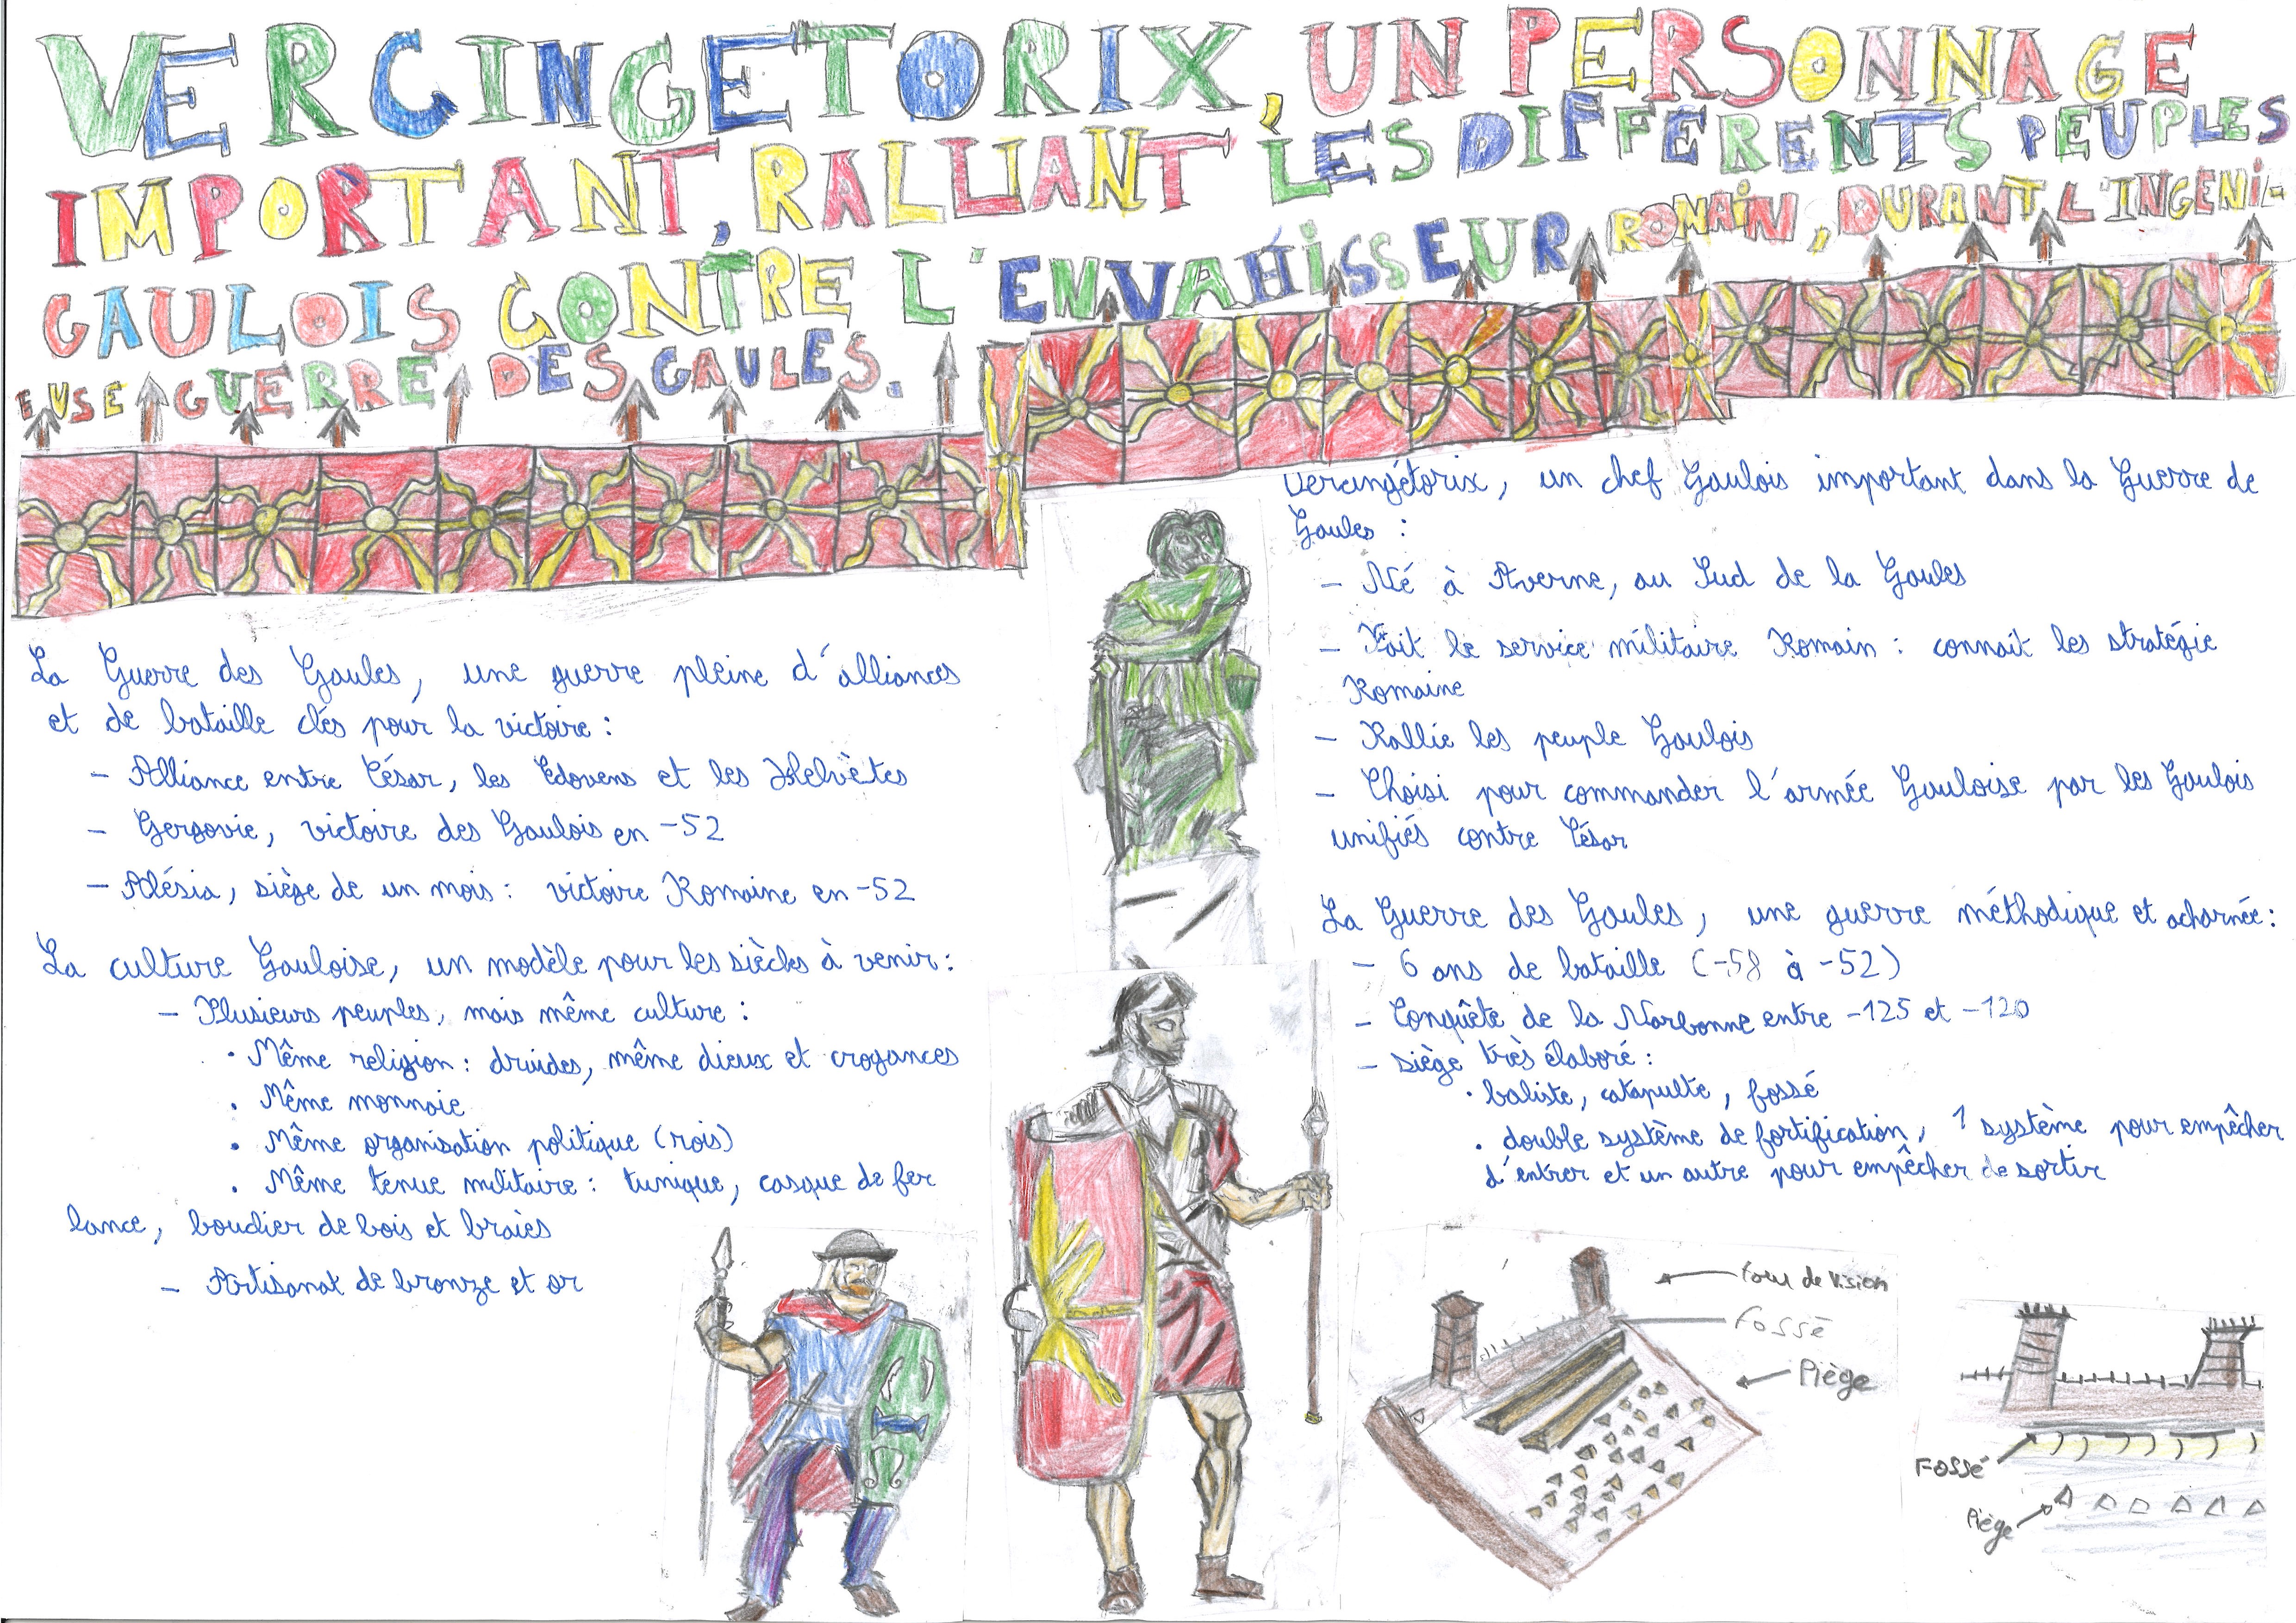 VERCINGETORIX, UN PERSONNAGE
IMPORTANT, RALLIANT LES DIFFÉRENTS PEUPLES
GAULOIS CONTRE L'ENVAHISSEUR ROMAIN, DURANT L'INGENI-
EUSE GUERRE DES GAULES.
La Guerre des Gaules, une guerre pleine d'alliances
et de bataille clés pour la victoire :
- Alliance entre César, les Edouens et les Helvètes
- Gergovie, victoire des Gaulois en -52
- Alésia, siège de un mois : victoire Romaine en -52
La culture Gauloise, un modèle pour les siècles à venir :
- Plusieurs peuples, mais même culture :
• Même religion : druides, même dieux et croyances
• Même monnaie
• Même organisation politique (rois)
• Même tenue militaire : tunique, casque de fer
lance, bouclier de bois et braies
- Artisanat de bronze et or
Vercingétorix, un chef Gaulois important dans la Guerre de
Gaules :
- Né à Averne, au Sud de la Gaules
- Fait le service militaire Romain : connaît les stratégie
Romaine
- Rallie les peuple Gaulois
- Choisi pour commander l'armée Gauloise par les Gaulois
unifiés contre César
La Guerre des Gaules, une guerre méthodique et acharnée :
- 6 ans de bataille (-58 à -52)
- Conquête de la Narbonne entre -125 et -120
- siège très élaboré :
• baliste, catapulte, fossé
• double système de fortification, 1 système pour empêcher
d'entrer et un autre pour empêcher de sortir
tour de vision
Fossé
Piège
Fossé
Piège